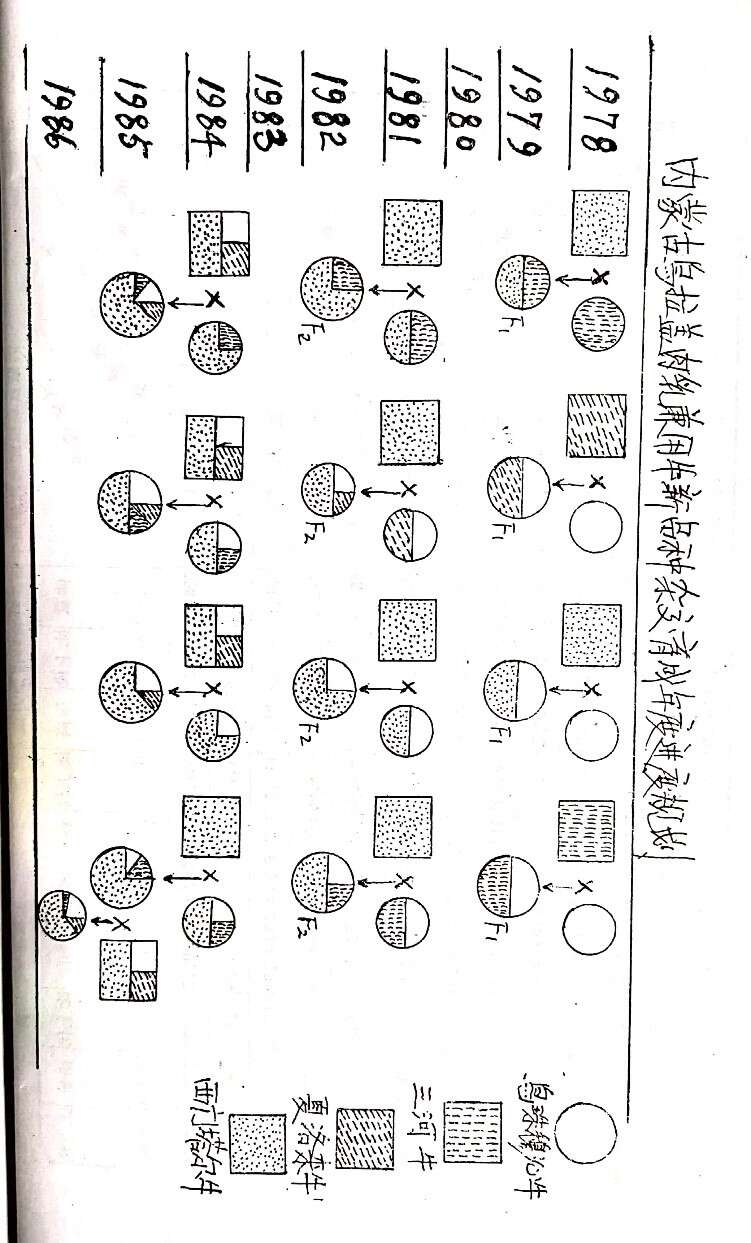 内蒙古乌拉盖肉乳兼用牛新品种杂交育成年度进度规划
1978
1979
F₁
F₁
F₁
F₁
1980
1981
1982
F₂
F₂
F₂
F₂
1983
1984
1985
1986
乌珠穆沁牛
三河牛
夏洛来牛
西门塔尔牛